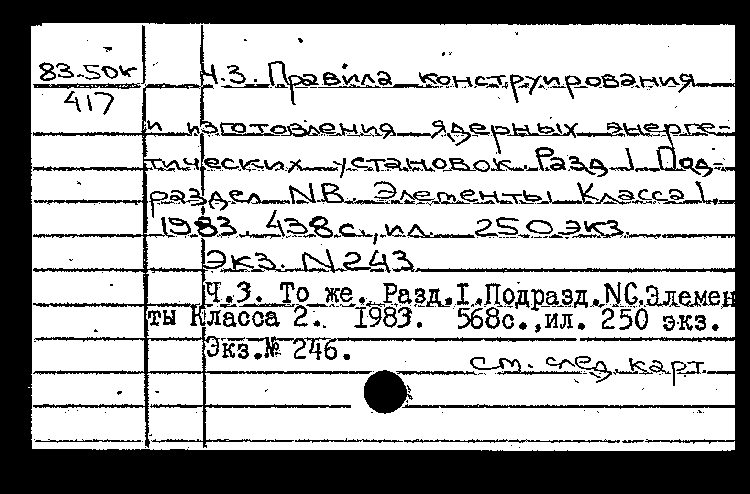 83-50к
417
Ч.3. Правила конструирования
и изготовления ядерных энерге-
тических установок. Разд I Под-
раздел NB. Элементы Класса I.
1983. 438с.,ил. 250 экз
Экз. N 243
Ч.3. То же. Разд.I.Подразд.NC.Элемен
ты Класса 2. 1983. 568с.,ил. 250 экз.
Экз.№ 246.
см. след. карт.